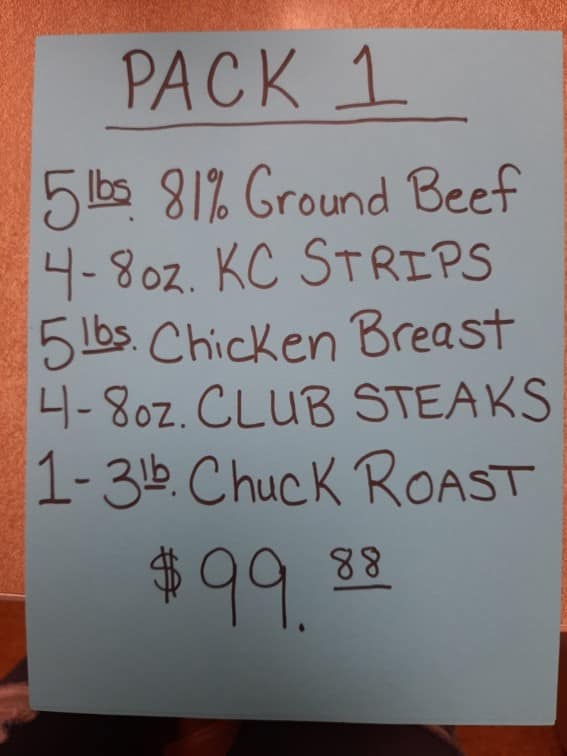 PACK 1
5 lbs. 81% Ground Beef
4-8oz. KC STRIPS
5 lbs. Chicken Breast
4-8oz. CLUB STEAKS
1-3 lb. Chuck ROAST
$99.88